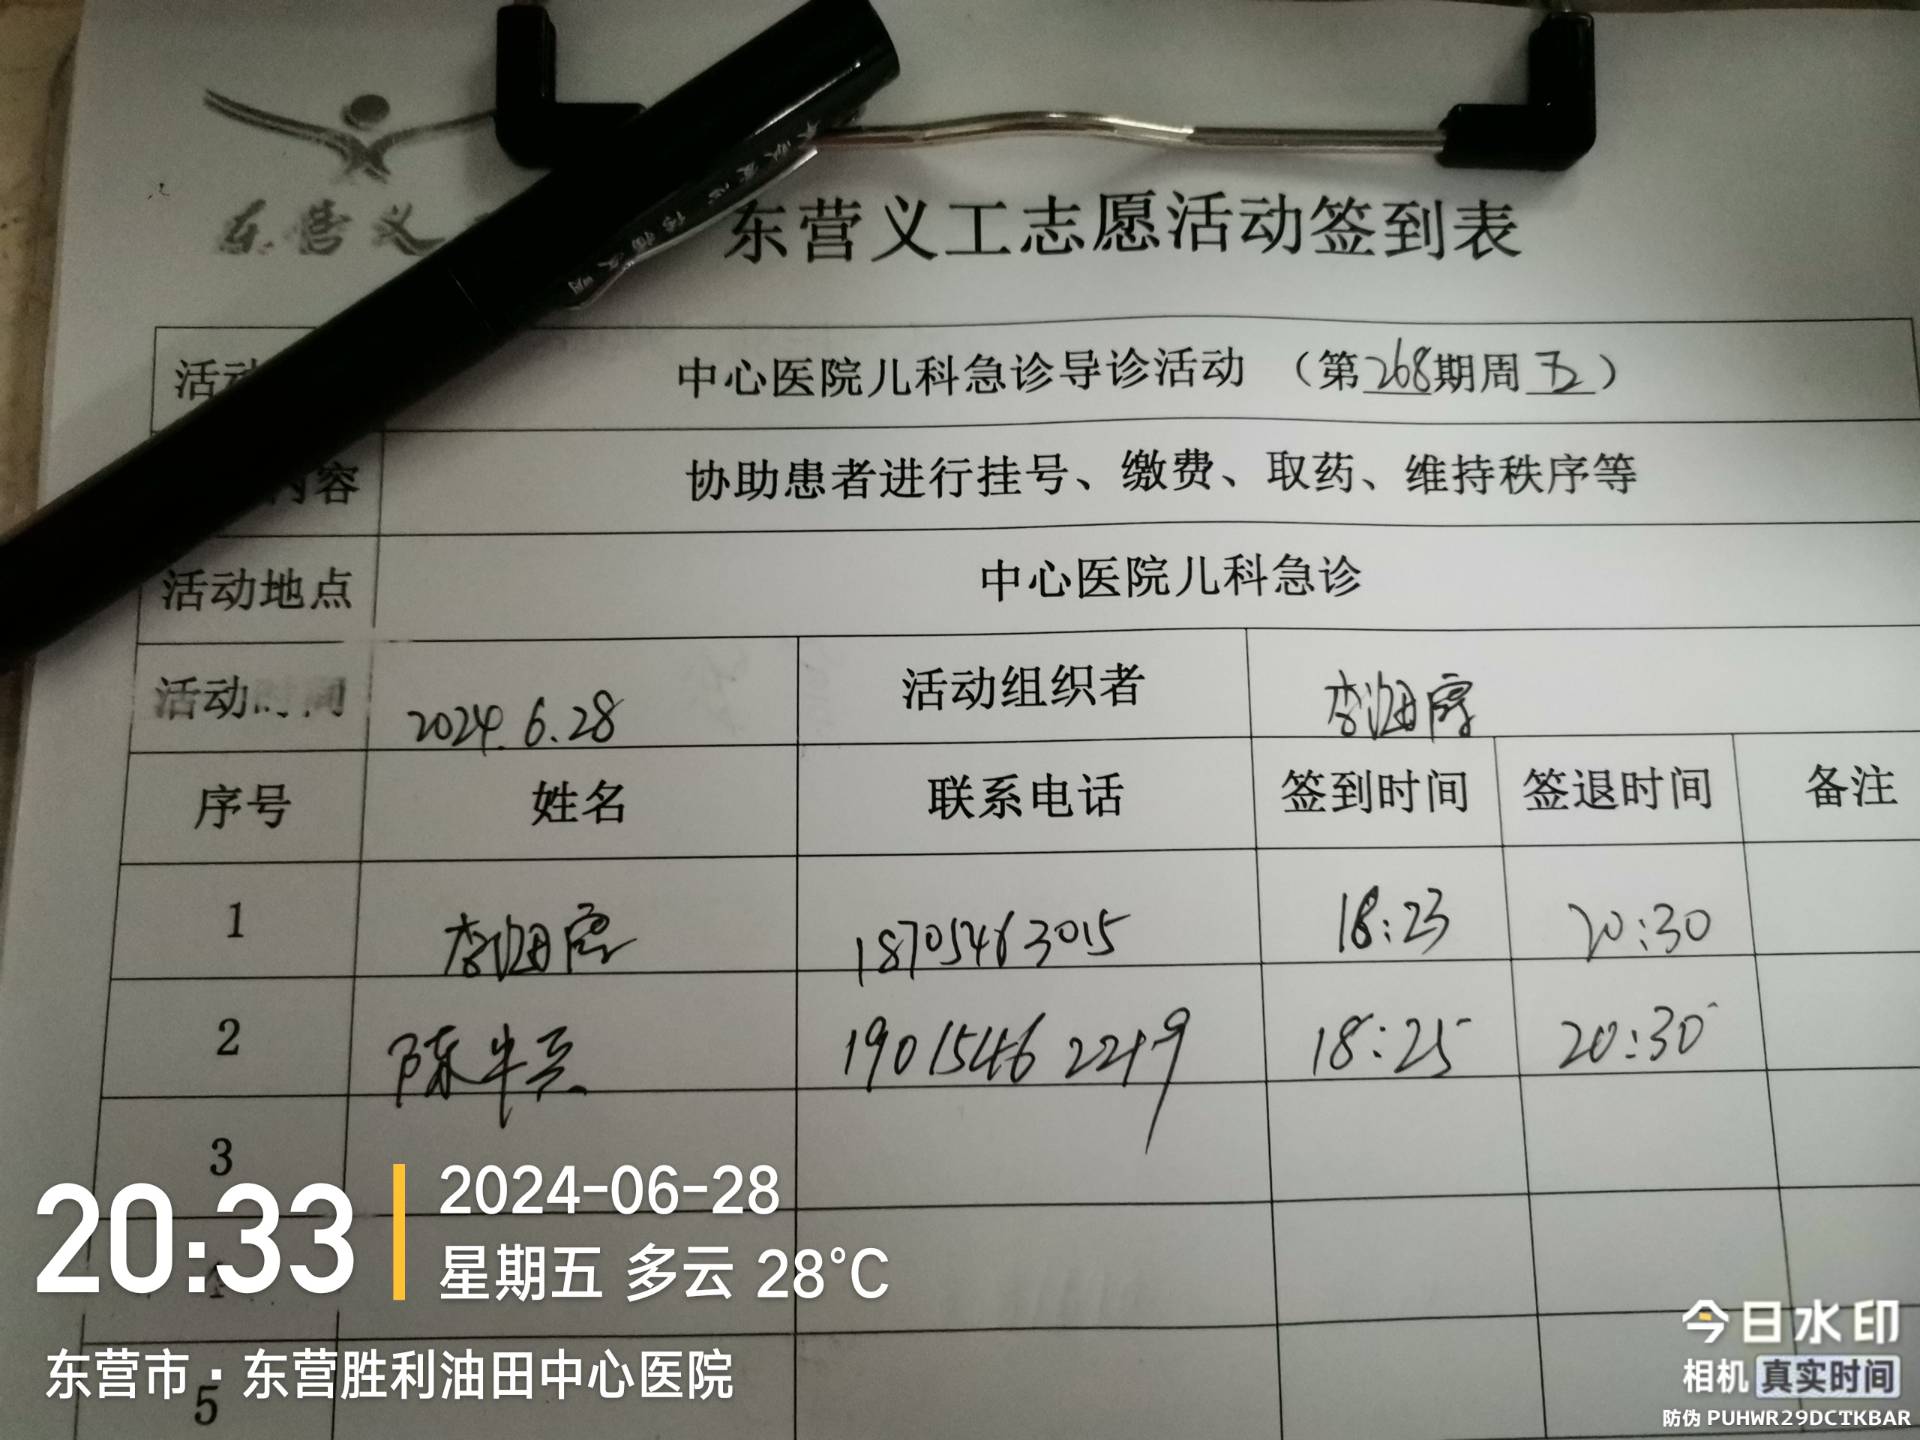 东营义
东营义工志愿活动签到表
活动 中心医院儿科急诊导诊活动 (第268期周五)
内容 协助患者进行挂号、缴费、取药、维持秩序等
活动地点 中心医院儿科急诊
活动时间 2024.6.28 活动组织者
序号 姓名 联系电话 签到时间 签退时间 备注
1 18705463015 18:23 20:30
2 19015462219 18:25 20:30
3
4
5
20:33
2024-06-28
星期五 多云 28°C
东营市·东营胜利油田中心医院
今日水印
相机 真实时间
防伪 PUHWR29DCTKBAR